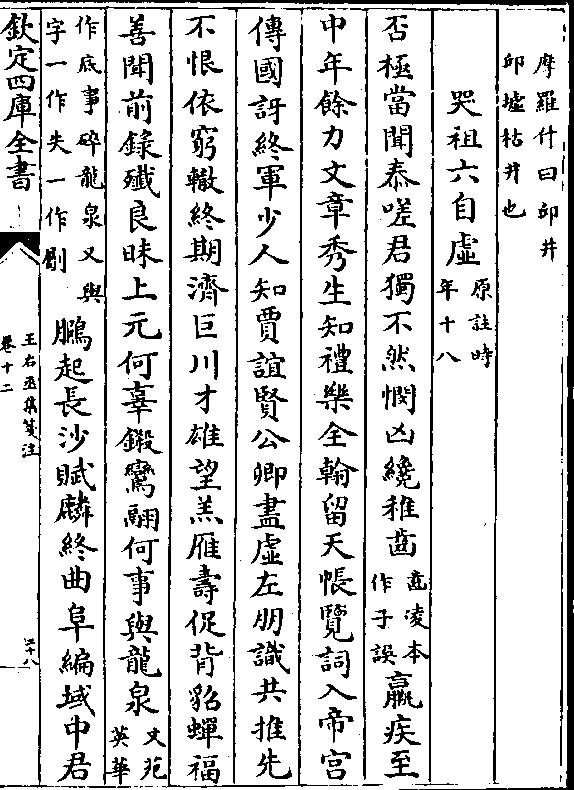 摩羅什曰邱井
邱墟枯井也
哭祖六自虛
原註時
年十八
否極當聞泰嗟君獨不然憫凶纔稚齒
齒凌本
作子誤
羸疾至
中年餘力文章秀生知禮樂全翰留天帳覽詞入帝宮
傳國訝終軍少人知賈誼賢公卿盡虛左朋識共推先
不恨依窮轍終期濟巨川才雄望羔雁壽促背貂蟬福
善聞前錄殲良昧上元何辜鎩鸞翮何事與龍泉
文苑
英華
作底事碎龍泉又與
字一作失一作劚
鵩起長沙賦麟終曲阜編域中君
欽定四庫全書
王右丞集箋注
卷十二